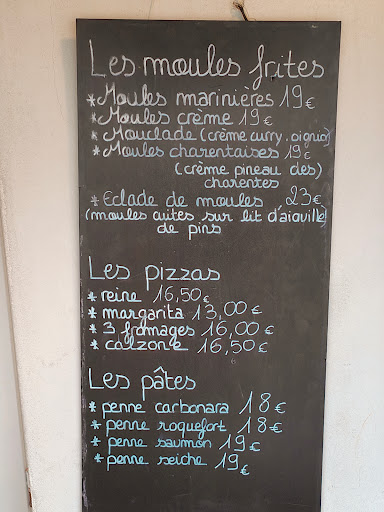 Les moules frites
* Moules marinières 19€
* Moules crème 19€
* Mouclade (crème curry. oignon)
* Moules charentaises 19€
(crème pineau des)
charentes
* Eclade de moules 23€
(moules cuites sur lit d'aiguille)
de pins
Les pizzas
* reine 16,50€
* margarita 13,00€
* 3 fromages 16,00€
* calzone 16,50€
Les pâtes
* penne carbonara 18€
* penne roquefort 18€
* penne saumon 19€
* penne seiche 19€